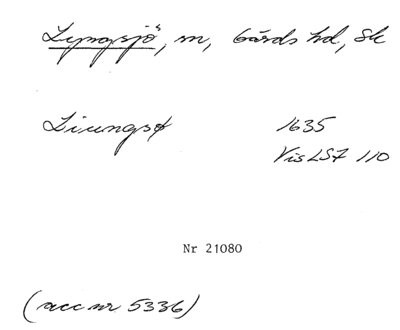 Lyngsjö, m, Gärds hd, Sk
Liungsø 1635
Vis LS7 110
Nr 21080
(acc nr 5336)